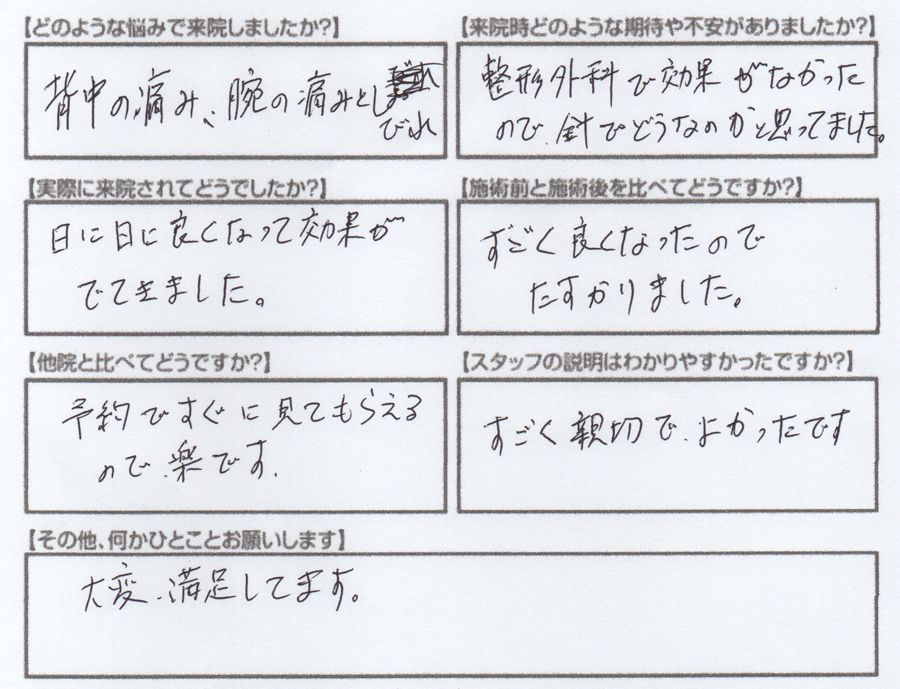 【どのような悩みで来院しましたか?】
背中の痛み、腕の痛みとし
びれ
【来院時どのような期待や不安がありましたか?】
整形外科で効果がなかった
ので、針でどうなのかと思ってました。
【実際に来院されてどうでしたか?】
日に日に良くなって効果が
でてきました。
【施術前と施術後を比べてどうですか?】
すごく良くなったので
たすかりました。
【他院と比べてどうですか?】
予約ですぐに見てもらえる
ので、楽です.
【スタッフの説明はわかりやすかったですか?】
すごく親切で、よかったです
【その他、何かひとことお願いします】
大変、満足してます。